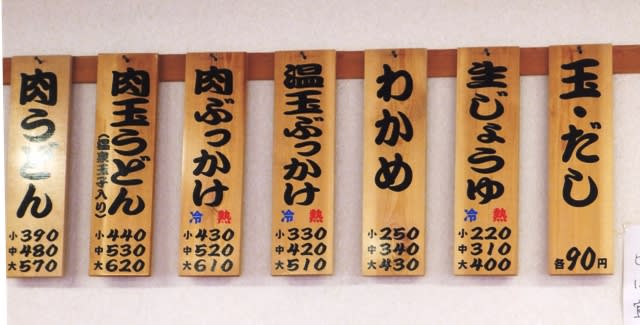 肉うどん
小390
中480
大570
肉玉うどん
(温泉玉子入り)
小440
中530
大620
肉ぶっかけ
冷 熱
小430
中520
大610
温玉ぶっかけ
冷 熱
小330
中420
大510
わかめ
小250
中340
大430
生じょうゆ
冷 熱
小220
中310
大400
玉・だし
各90円